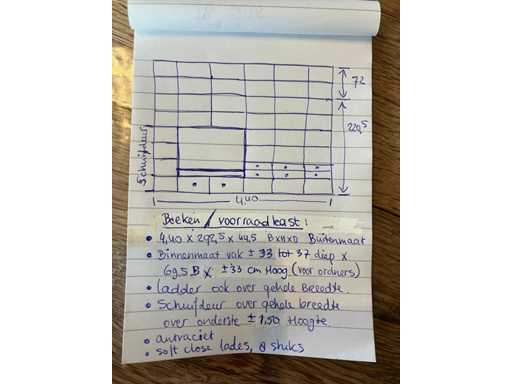 72
220,5
Schuifdeur
4,40
Boeken / voorraadkast :
• 4,40 x 292,5 x 44,5 BxHxD Buitenmaat
• Binnenmaat vak ± 33 tot 37 diep x
69,5 B x ± 33 cm Hoog (voor ordners)
• ladder ook over gehele breedte.
• Schuifdeur over gehele breedte
over onderste ± 1,50 Hoogte.
• antraciet
• soft close lades, 8 stuks